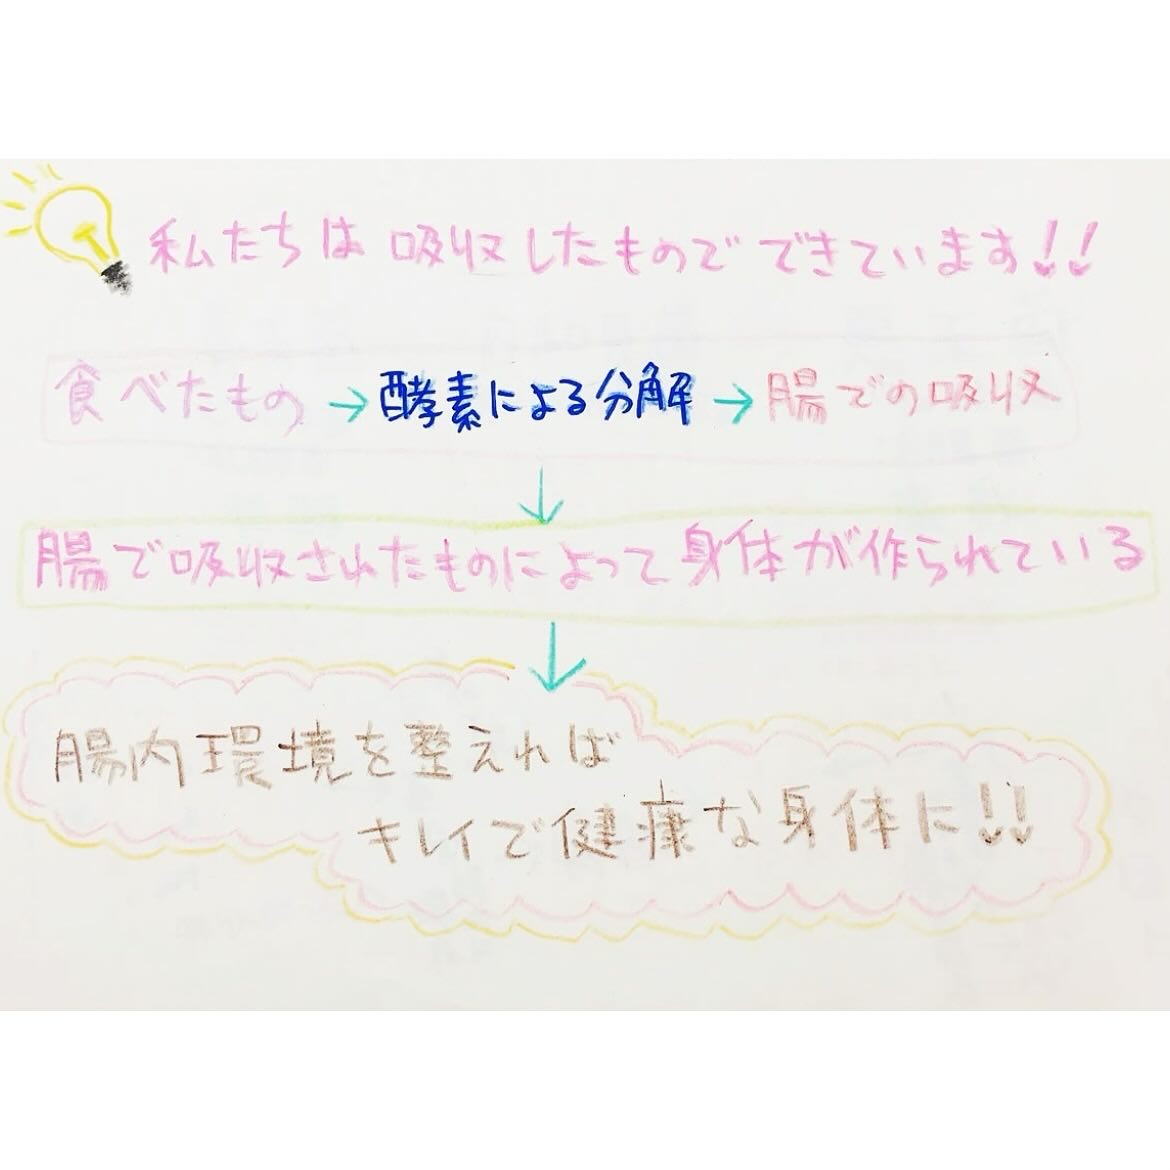 私たちは吸収したものでできています!!
食べたもの→酵素による分解→腸での吸収
↓
腸で吸収されたものによって身体が作られている
↓
腸内環境を整えれば
キレイで健康な身体に!!